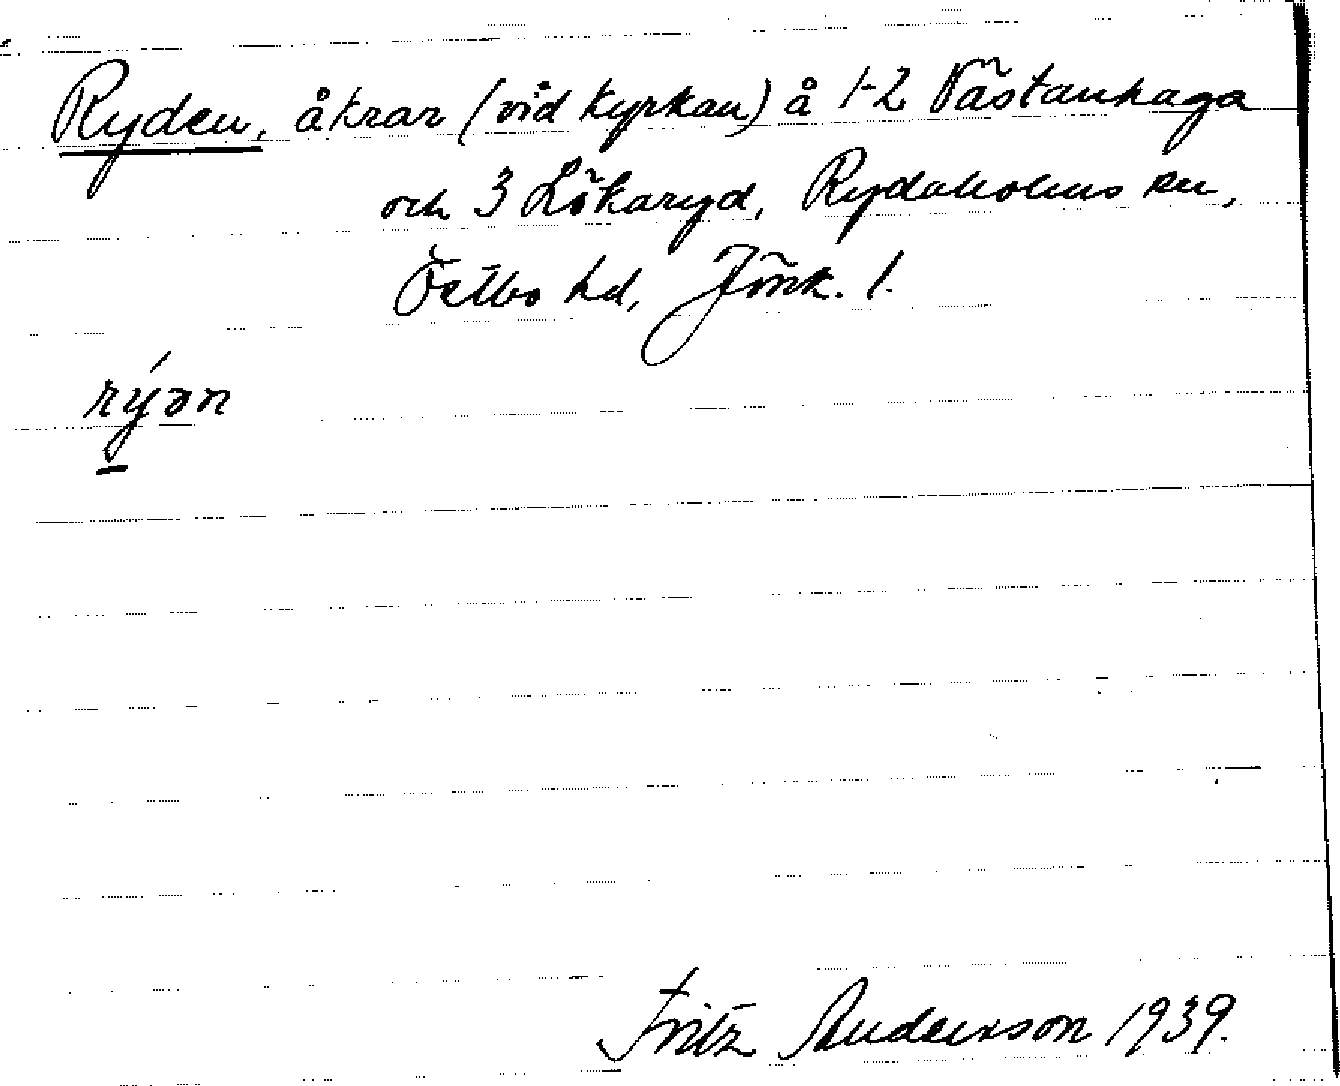 Ryden, åkrar (vid kyrkan) å 1-2 Västanhaga
och 3 Lökaryd, Rydaholms sn,
Östbo hd, Jönk. l.
rýən
Fritz Anderson 1939.